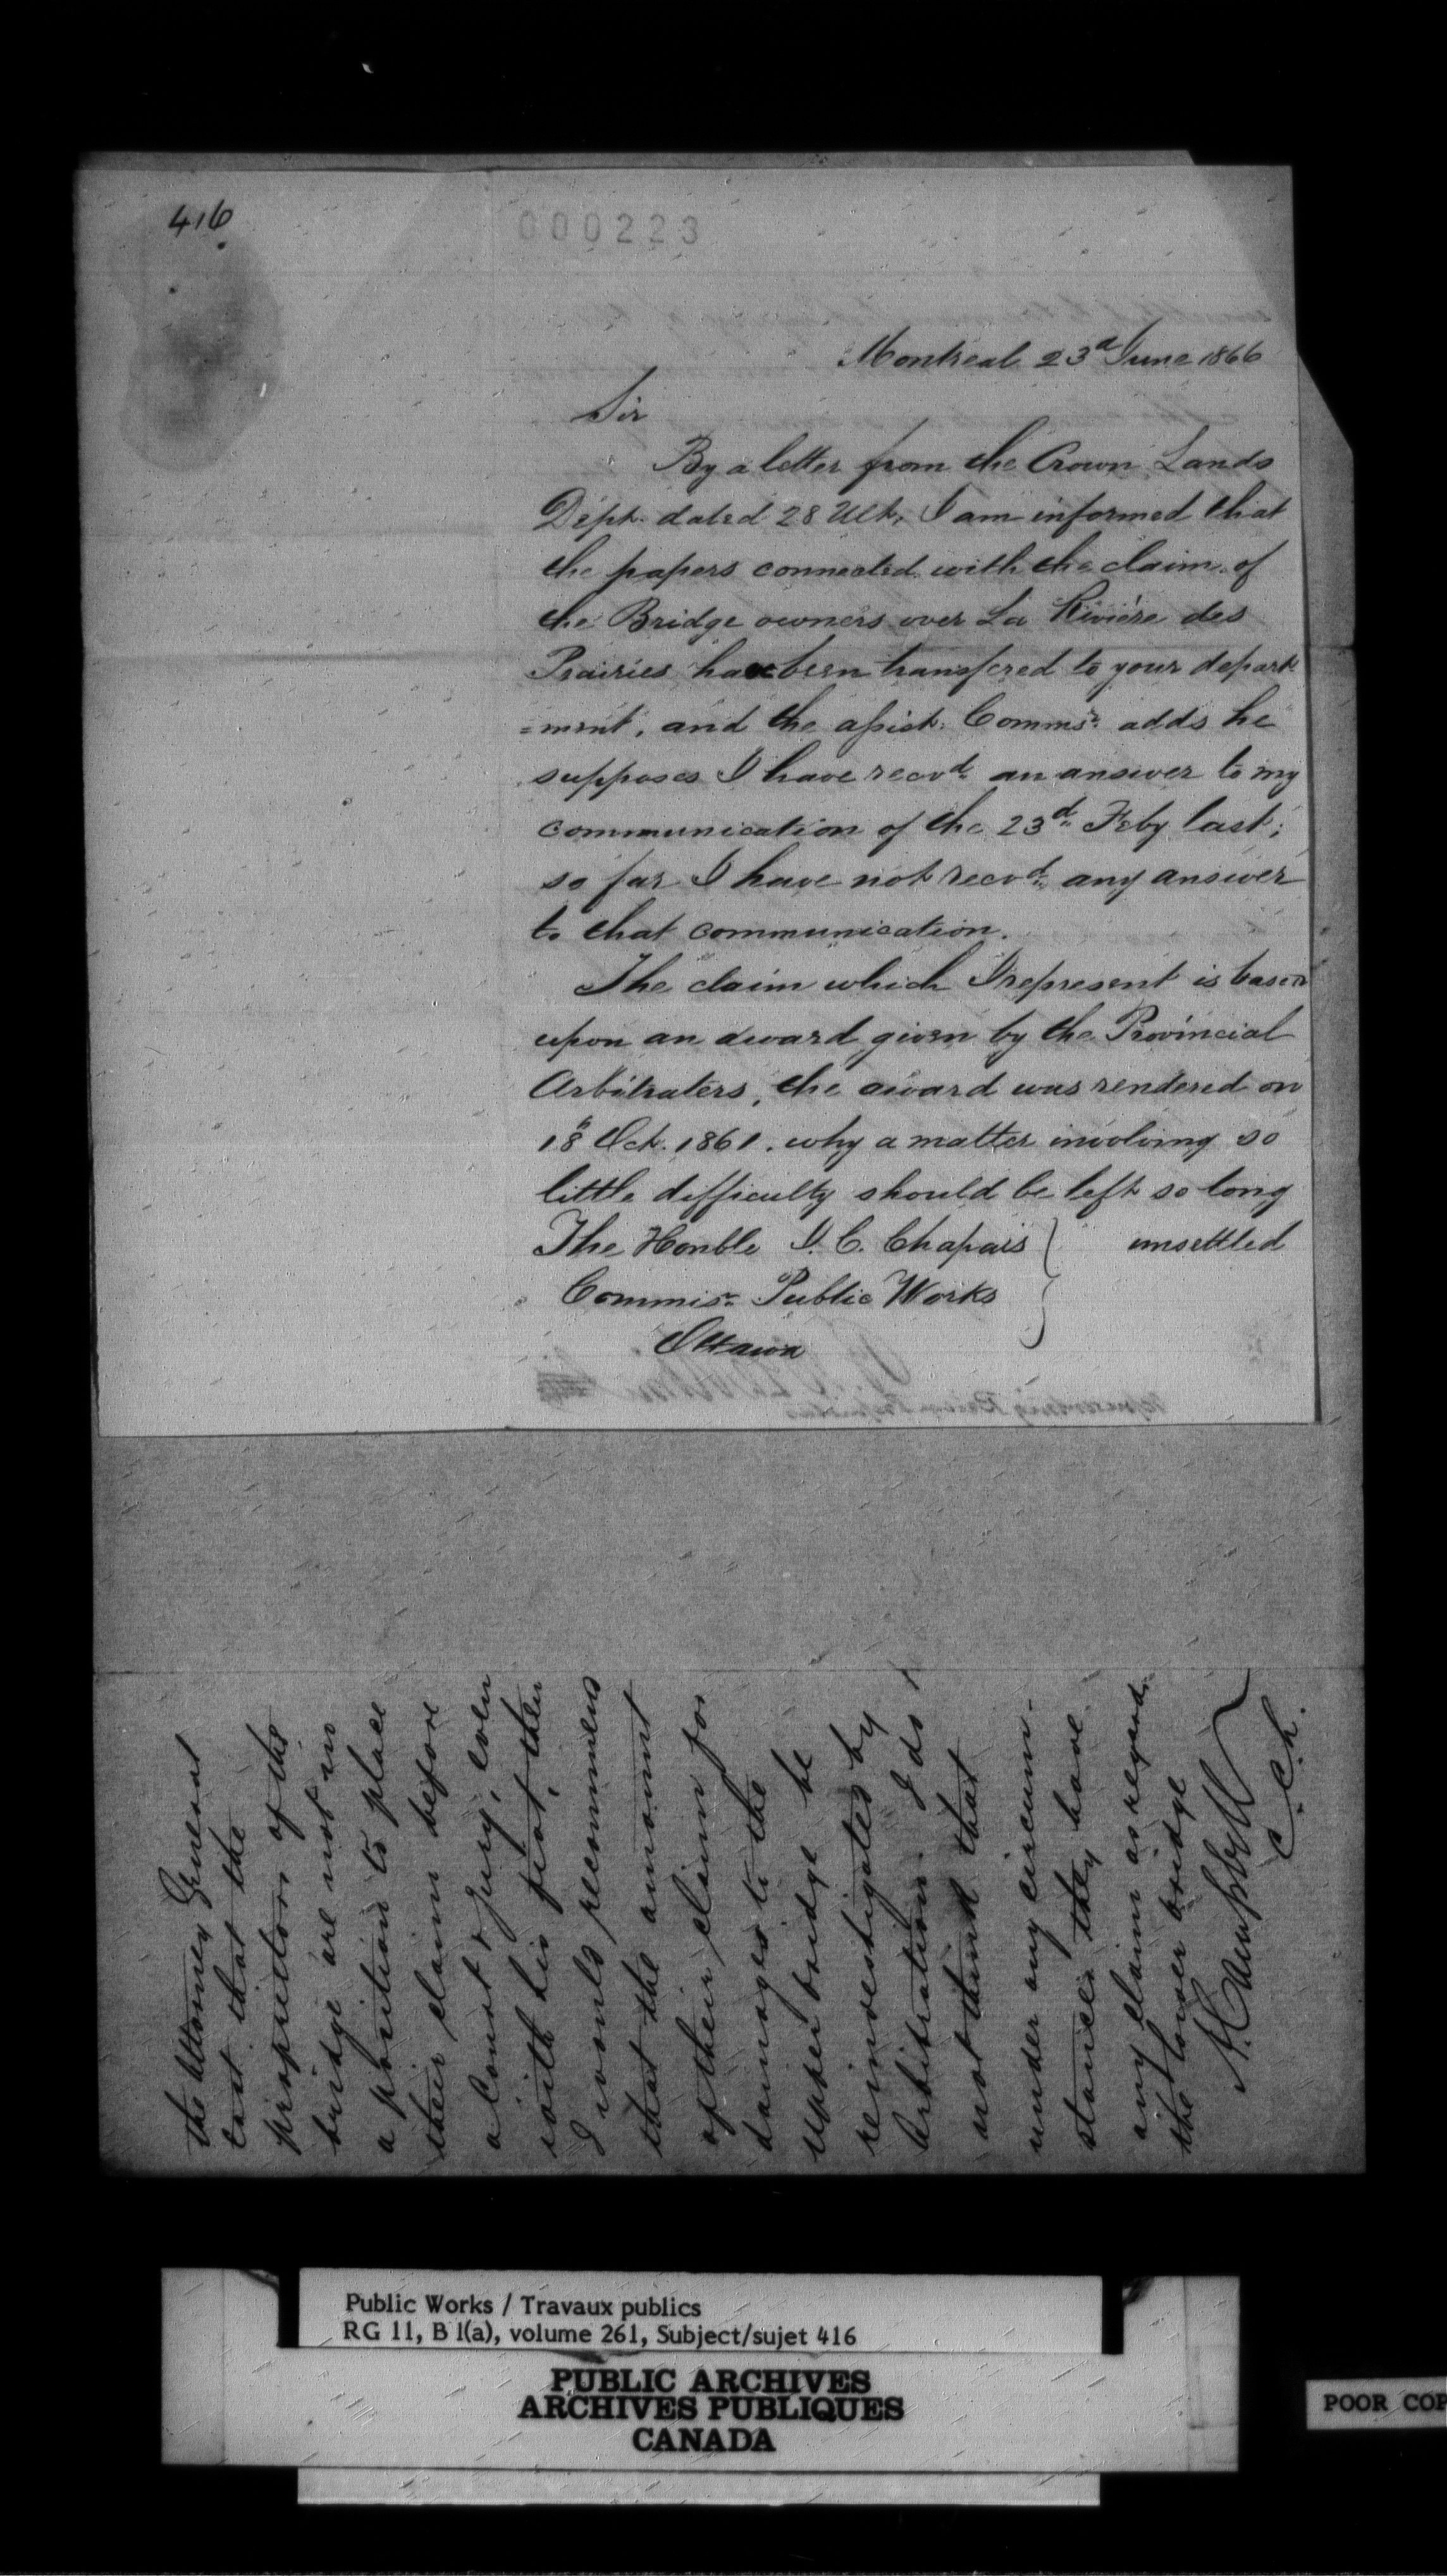 416
000223
Montreal 23d June 1866
Sir
By a letter from the Crown Lands
Dept. dated 28 Ult, I am informed that
the papers connected with the claim of
the Bridge owners over La Rivière des
Prairies have been transfered to your depart-
=ment, and the assist: Commsr. adds he
supposes I have recvd. an answer to my
communication of the 23d. Feby last;
so far I have not recvd. any answer
to that communication.
The claim which I represent is based
upon an award given by the Provincial
Arbitraters, the award was rendered on
18 Oct. 1861. why a matter involving so
little difficulty should be left so long
The Honble J. C. Chapais } unsettled
Commisr. Public Works
Ottawa
the Attorney General
that the
proprietors of the
bridge are not in
a position to place
their claim before
a Court & Jury, even
with his fiat, then
I would recommend
that the amount
of their claim for
damages to the
upper bridge be
reinvestigated by
Arbitration. I do
not think that
under any circum-
stances they have
any claim as regards
the lower bridge
A Campbell
C.C.L.
Public Works / Travaux publics
RG 11, B 1(a), volume 261, Subject/sujet 416
PUBLIC ARCHIVES
ARCHIVES PUBLIQUES
CANADA
POOR COP